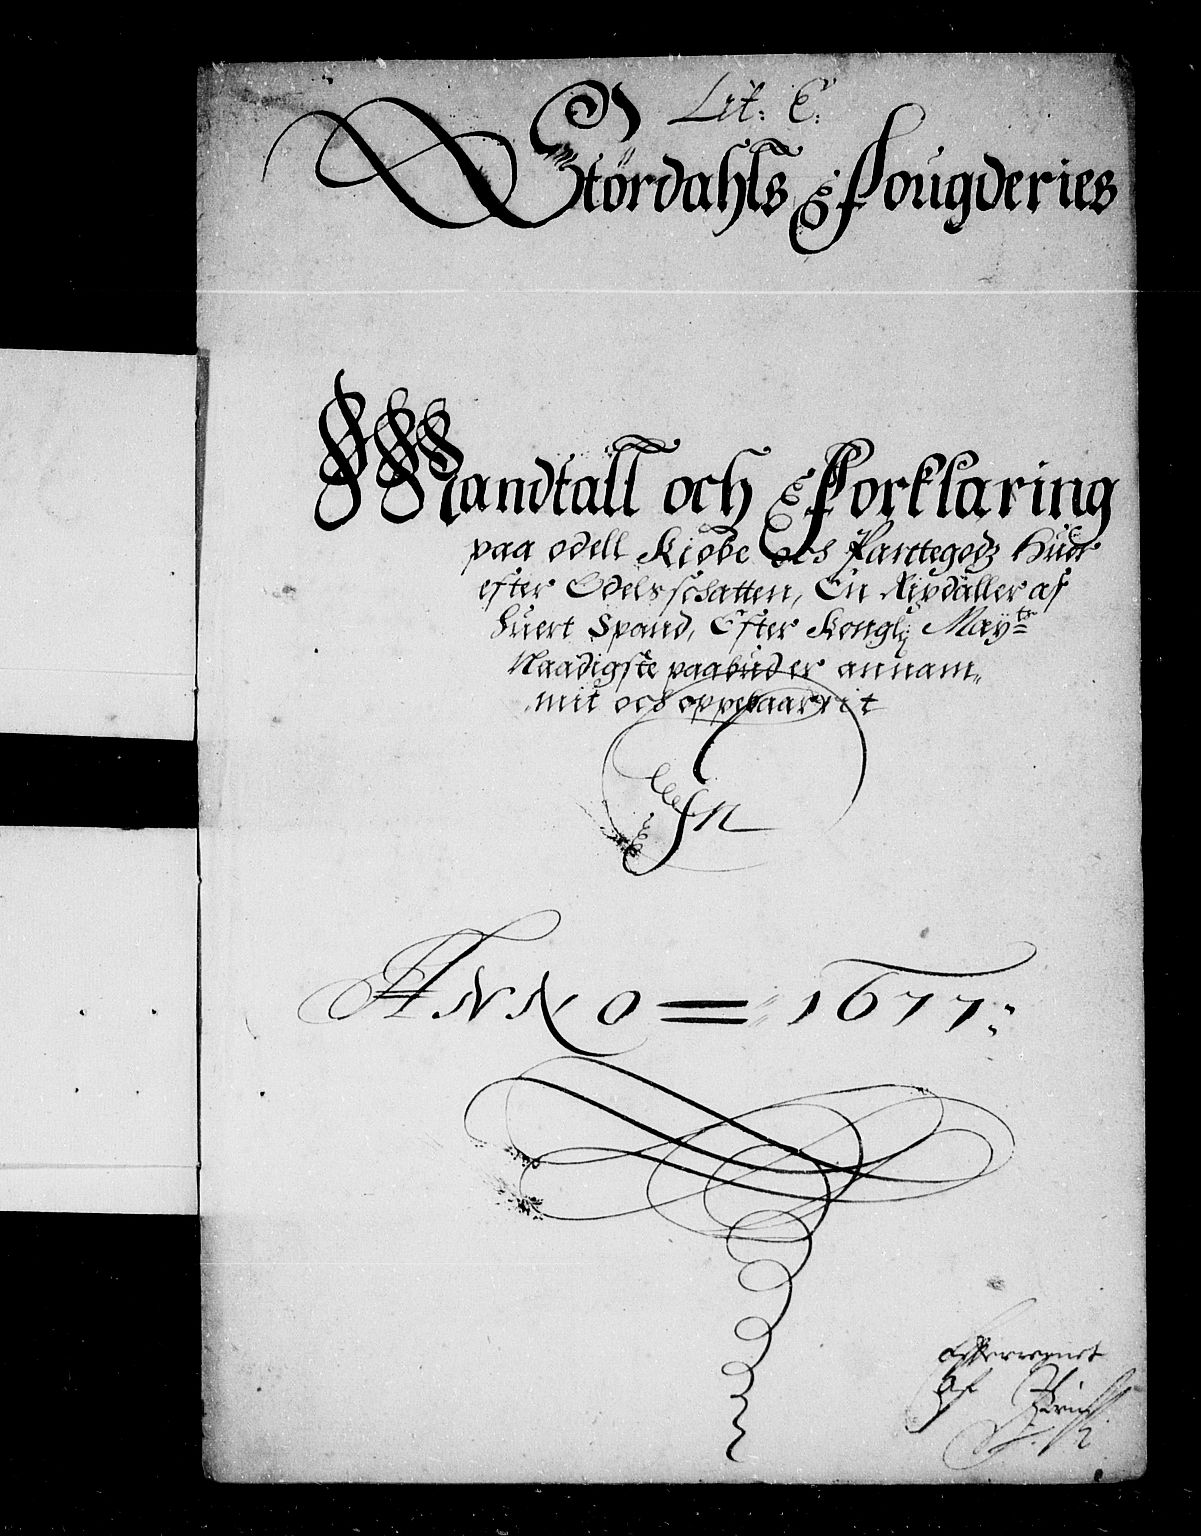 Lit: C:
Stördahls Fougderies
Mandtall och Forklaring
paa odell Kiøbe och Panttegodz Huor
efter Odelsschatten, En Rixdaller af
huert Spand, Efter Konglij Maÿts
Naadigste paabuder annam„
mit och oppebaarrit
ANNO = 1677:
Efterregnet
Af